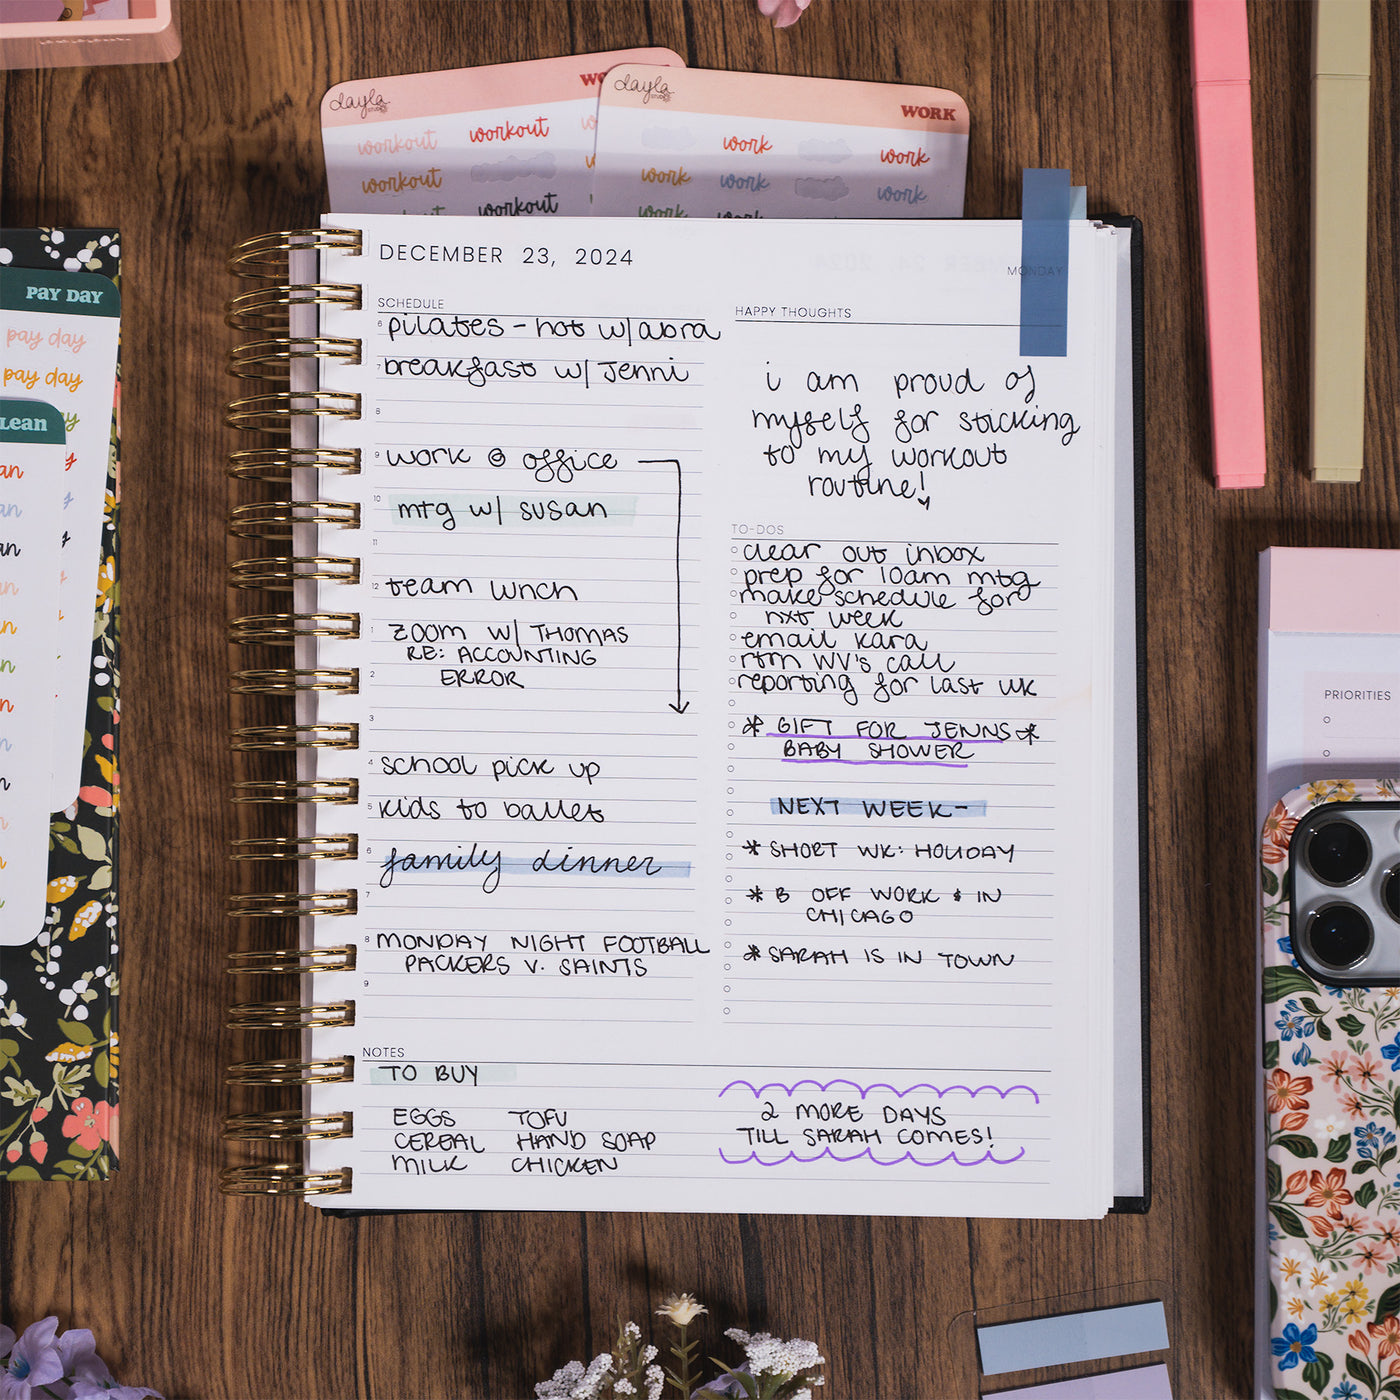 dayla
STUDIO
WO
workout
workout
workout
workout
dayla
STUDIO
WORK
work
work
work
work
work
work
PAY DAY
pay day
pay day
LEAN
DECEMBER 23, 2024
MONDAY
SCHEDULE
6 pilates - hot w/ abra
7 breakfast w/ Jenni
8
9 work @ office
10 mtg w/ susan
11
12 team lunch
1 ZOOM W/ THOMAS
RE: ACCOUNTING
2 ERROR
3
4 school pick up
5 kids to ballet
6 family dinner
7
8 MONDAY NIGHT FOOTBALL
PACKERS V. SAINTS
9
HAPPY THOUGHTS
i am proud of
myself for sticking
to my workout
routine!
TO-DOS
clear out inbox
prep for 10am mtg
make schedule for
nxt week
email kara
rtrn WV's call
reporting for last wk
* GIFT FOR JENNS *
BABY SHOWER
NEXT WEEK-
* SHORT WK: HOLIDAY
* B OFF WORK & IN
CHICAGO
* SARAH IS IN TOWN
NOTES
TO BUY
EGGS TOFU
CEREAL HAND SOAP
MILK CHICKEN
2 MORE DAYS
TILL SARAH COMES!
PRIORITIES